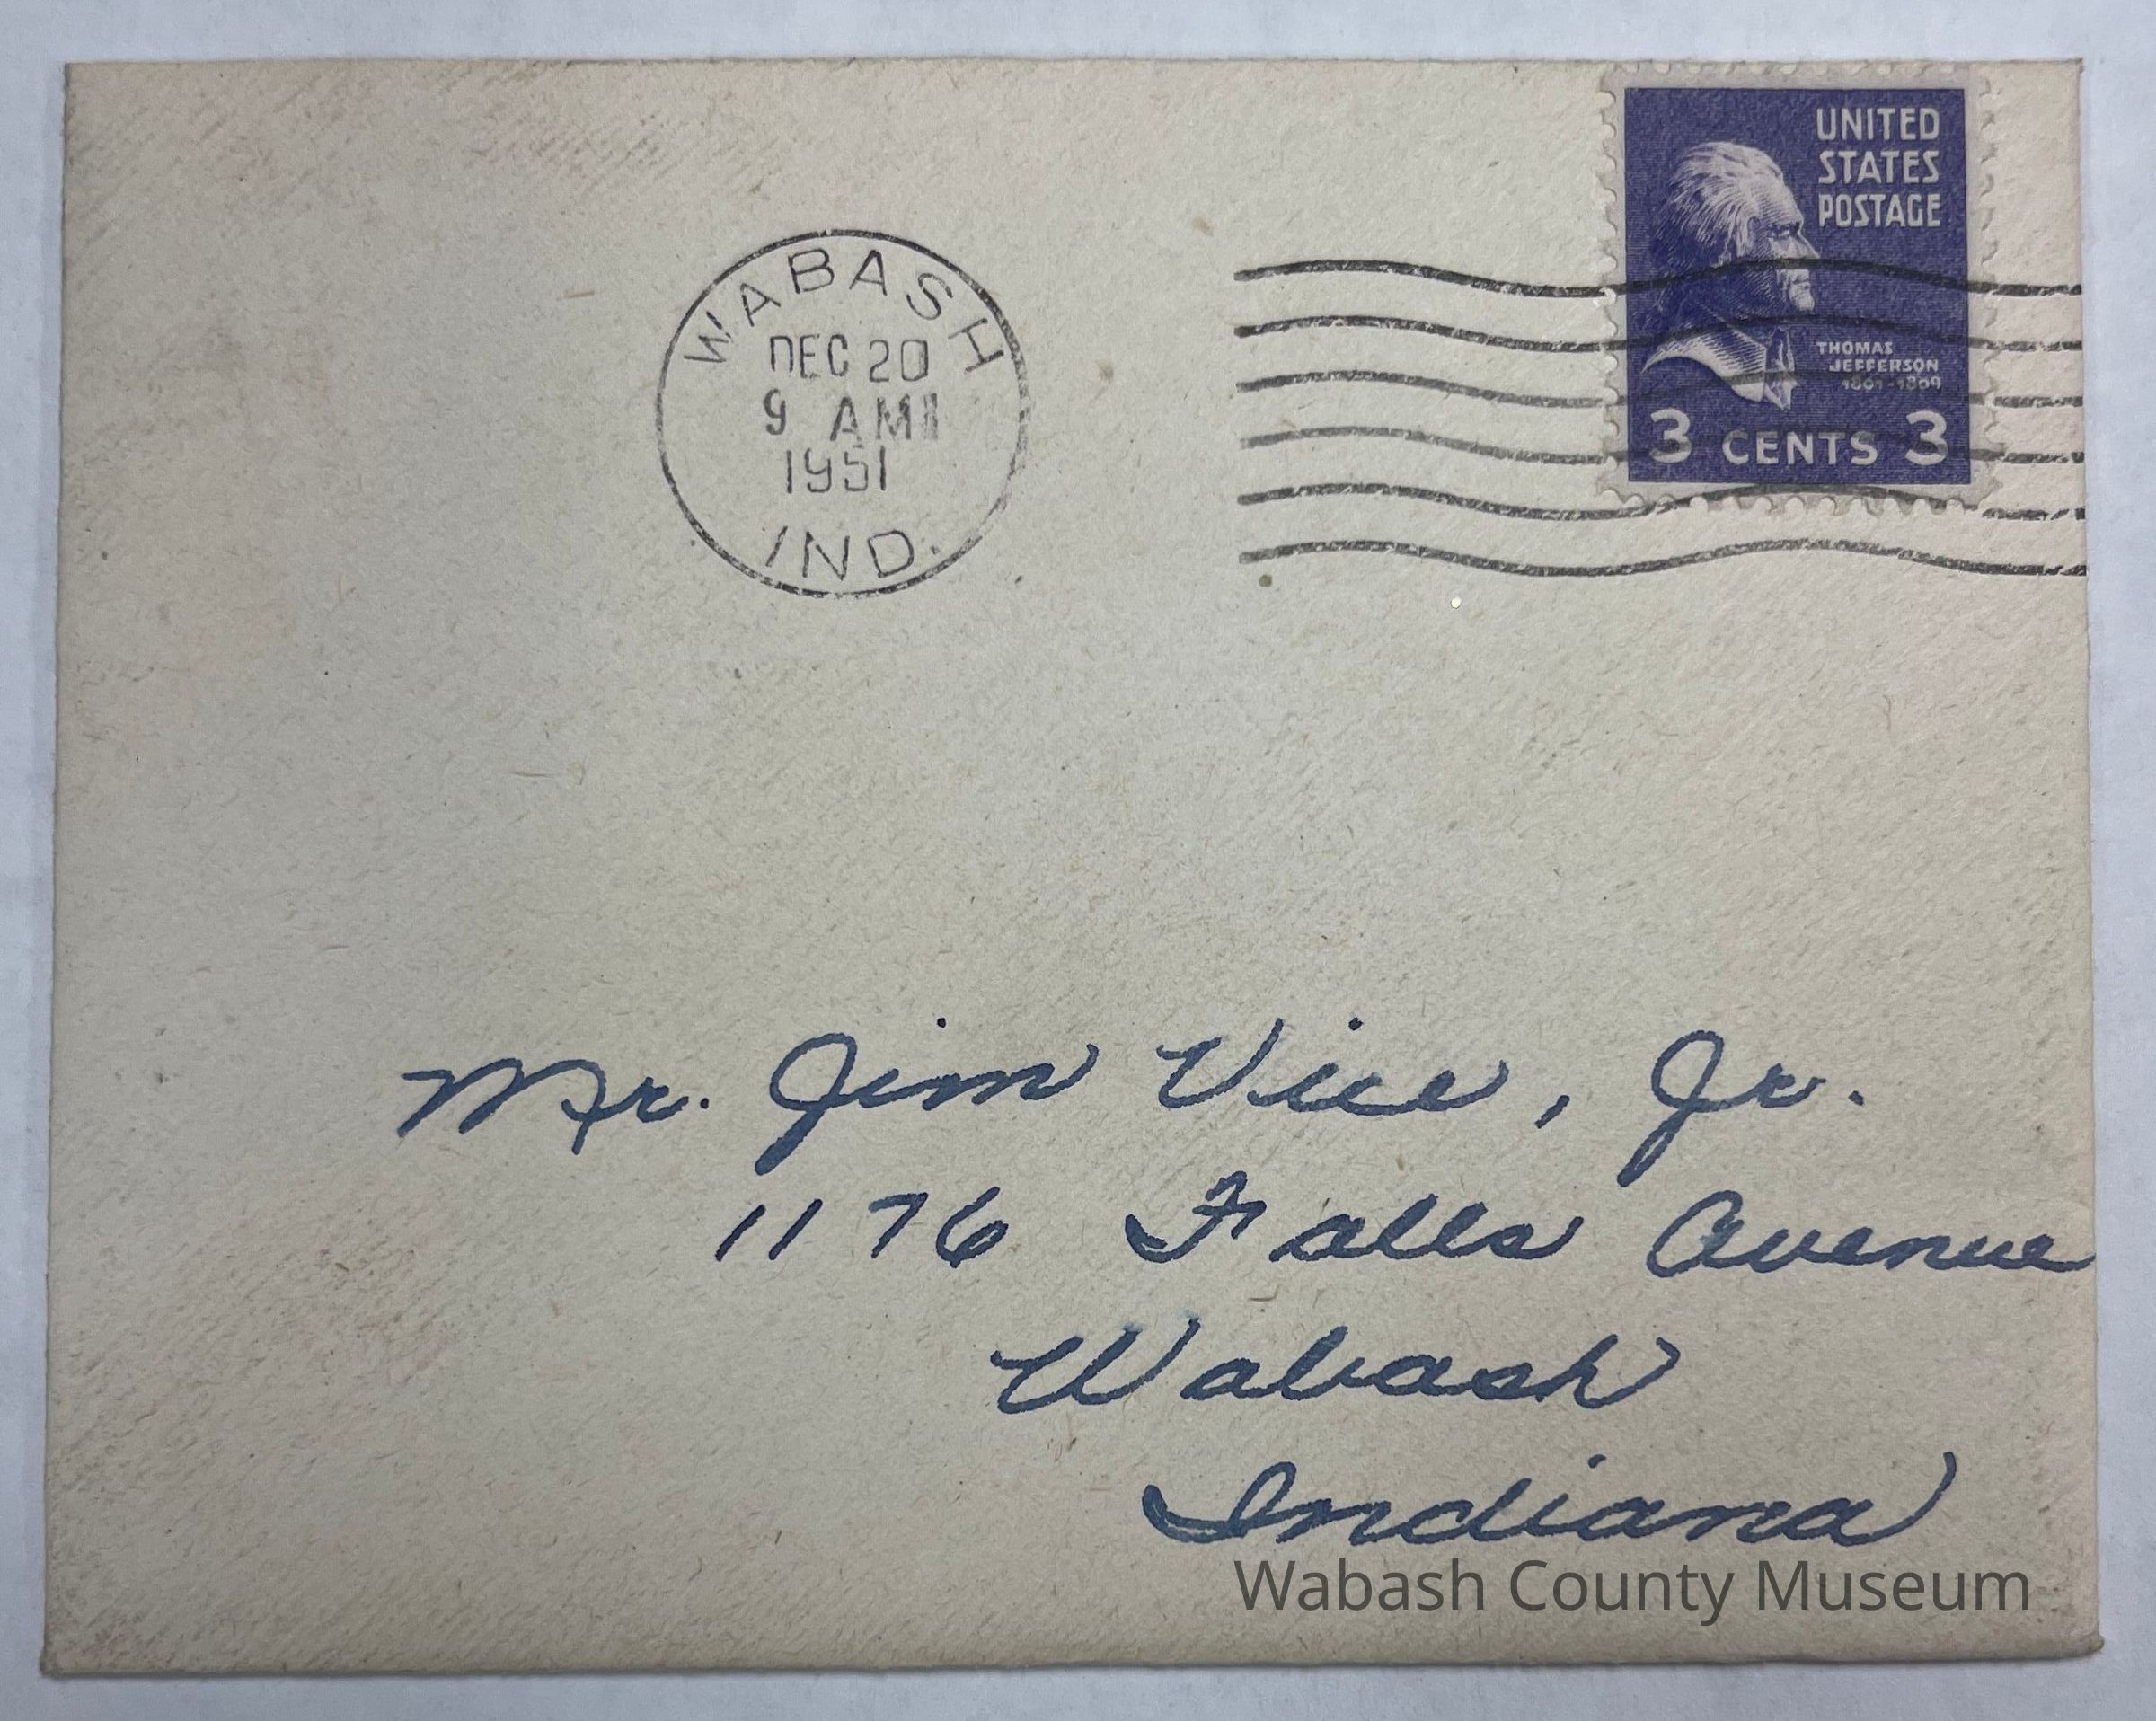 WABASH
DEC 20
9 AM
1951
IND.
UNITED
STATES
POSTAGE
THOMAS
JEFFERSON
1801-1809
3 CENTS 3
Mr. Jim Vice, Jr.
1176 Falls Avenue
Wabash
Indiana
Wabash County Museum